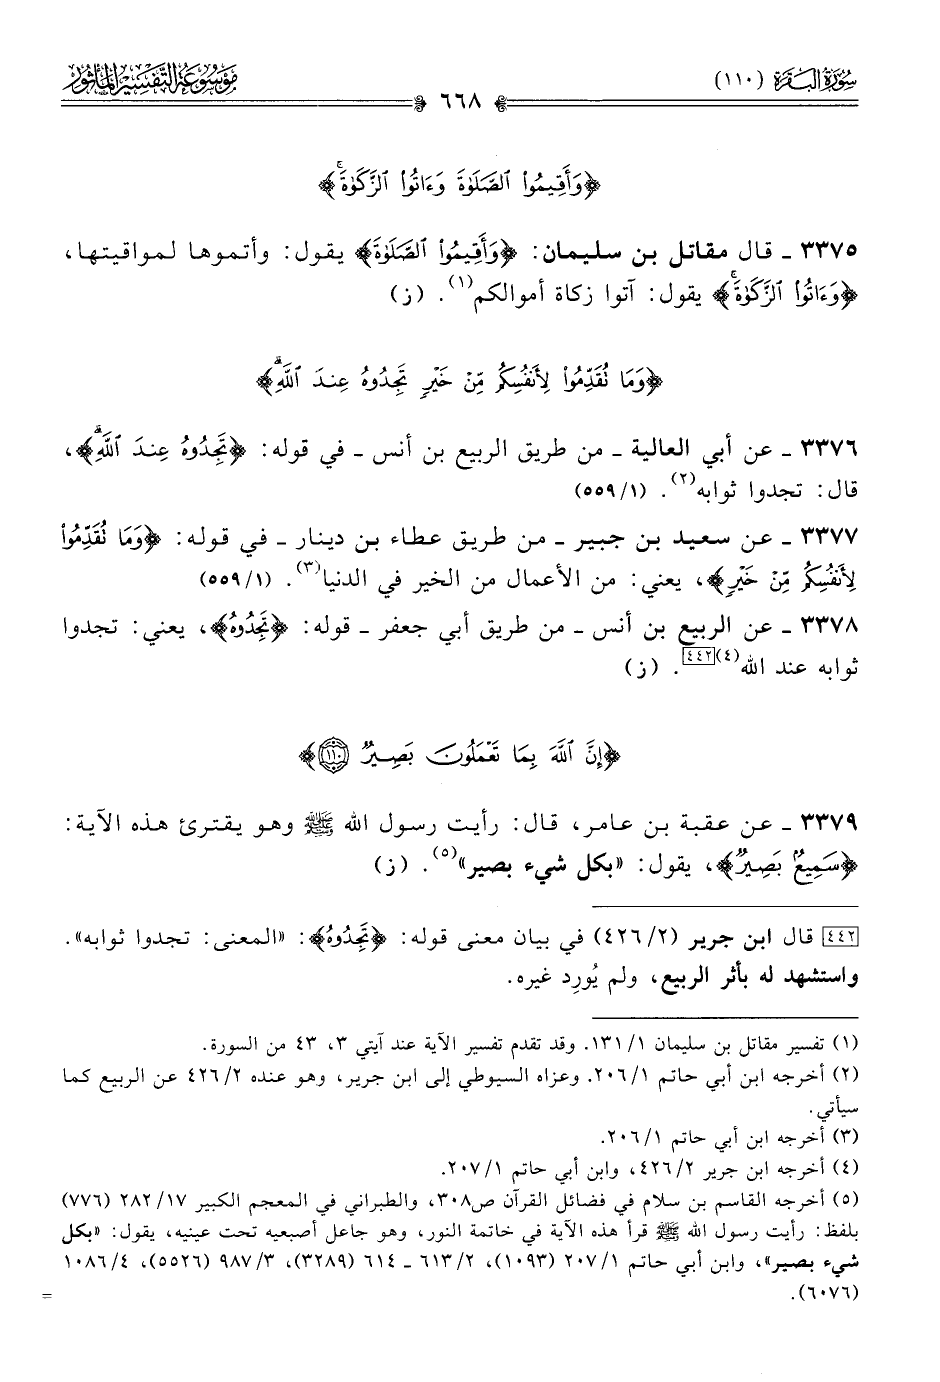 سُورَةُ البَقَرَةِ (١١٠)
٦٦٨
مَوْسُوعَةُ التَّفْسِيرِ المَأْثُورِ
﴿وَأَقِيمُوا۟ ٱلصَّلَوٰةَ وَءَاتُوا۟ ٱلزَّكَوٰةَۚ﴾
٣٣٧٥ ـ قال مقاتل بن سليمان: ﴿وَأَقِيمُوا۟ ٱلصَّلَوٰةَ﴾ يقول: وأتموها لمواقيتها،
﴿وَءَاتُوا۟ ٱلزَّكَوٰةَۚ﴾ يقول: آتوا زكاة أموالكم(١). (ز)
﴿وَمَا تُقَدِّمُوا۟ لِأَنفُسِكُم مِّنْ خَيْرٍ تَجِدُوهُ عِندَ ٱللَّهِۗ﴾
٣٣٧٦ ـ عن أبي العالية ـ من طريق الربيع بن أنس ـ في قوله: ﴿تَجِدُوهُ عِندَ ٱللَّهِۗ﴾،
قال: تجدوا ثوابه(٢). (٥٥٩/١)
٣٣٧٧ ـ عن سعيد بن جبير ـ من طريق عطاء بن دينار ـ في قوله: ﴿وَمَا تُقَدِّمُوا۟
لِأَنفُسِكُم مِّنْ خَيْرٍ﴾، يعني: من الأعمال من الخير في الدنيا(٣). (٥٥٩/١)
٣٣٧٨ ـ عن الربيع بن أنس ـ من طريق أبي جعفر ـ قوله: ﴿تَجِدُوهُ﴾، يعني: تجدوا
ثوابه عند الله(٤)[٤٤٢]. (ز)
﴿إِنَّ ٱللَّهَ بِمَا تَعْمَلُونَ بَصِيرٌ ١١٠﴾
٣٣٧٩ ـ عن عقبة بن عامر، قال: رأيت رسول الله ﷺ وهو يقترئ هذه الآية:
﴿سَمِيعٌۢ بَصِيرٌ﴾، يقول: «بكل شيء بصير»(٥). (ز)
[٤٤٢] قال ابن جرير (٤٢٦/٢) في بيان معنى قوله: ﴿تَجِدُوهُ﴾: «المعنى: تجدوا ثوابه».
واستشهد له بأثر الربيع، ولم يُورِد غيره.
(١) تفسير مقاتل بن سليمان ١٣١/١. وقد تقدم تفسير الآية عند آيتي ٣، ٤٣ من السورة.
(٢) أخرجه ابن أبي حاتم ٢٠٦/١. وعزاه السيوطي إلى ابن جرير، وهو عنده ٤٢٦/٢ عن الربيع كما
سيأتي.
(٣) أخرجه ابن أبي حاتم ٢٠٦/١.
(٤) أخرجه ابن جرير ٤٢٦/٢، وابن أبي حاتم ٢٠٧/١.
(٥) أخرجه القاسم بن سلام في فضائل القرآن ص٣٠٨، والطبراني في المعجم الكبير ٢٨٢/١٧ (٧٧٦)
بلفظ: رأيت رسول الله ﷺ قرأ هذه الآية في خاتمة النور، وهو جاعل أصبعيه تحت عينيه، يقول: «بكل
شيء بصير»، وابن أبي حاتم ٢٠٧/١ (١٠٩٣)، ٦١٣/٢ ـ ٦١٤ (٣٢٨٩)، ٩٨٧/٣ (٥٥٢٦)، ١٠٨٦/٤
(٦٠٧٦).
=